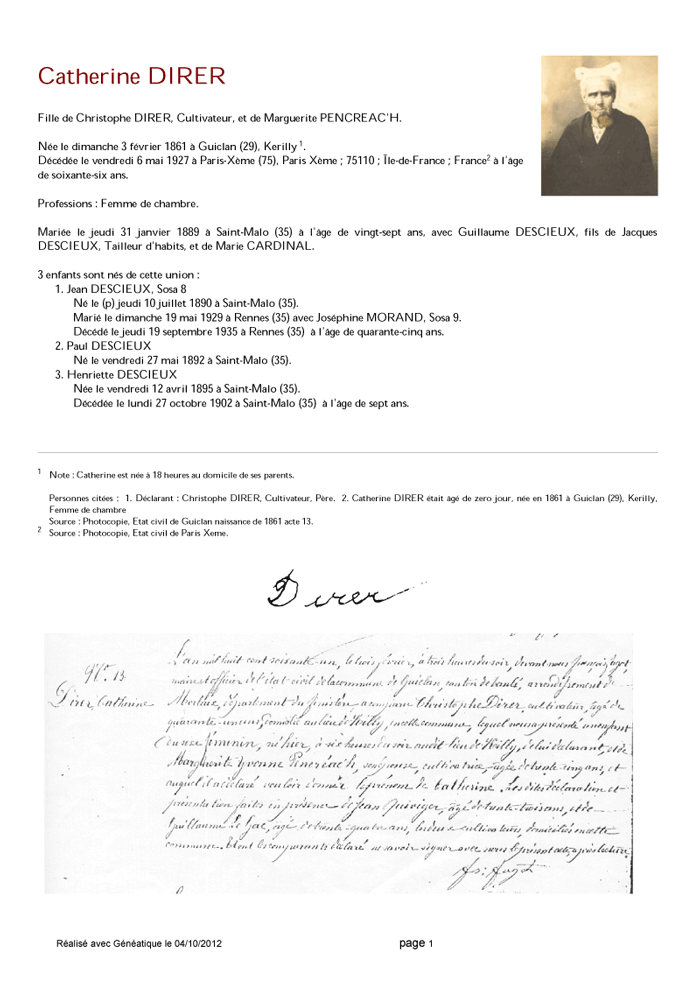 Catherine DIRER
Fille de Christophe DIRER, Cultivateur, et de Marguerite PENCREAC'H.
Née le dimanche 3 février 1861 à Guiclan (29), Kerilly 1.
Décédée le vendredi 6 mai 1927 à Paris-Xème (75), Paris Xème ; 75110 ; Île-de-France ; France2 à l'âge
de soixante-six ans.
Professions : Femme de chambre.
Mariée le jeudi 31 janvier 1889 à Saint-Malo (35) à l'âge de vingt-sept ans, avec Guillaume DESCIEUX, fils de Jacques
DESCIEUX, Tailleur d'habits, et de Marie CARDINAL.
3 enfants sont nés de cette union :
1. Jean DESCIEUX, Sosa 8
Né le (p) jeudi 10 juillet 1890 à Saint-Malo (35).
Marié le dimanche 19 mai 1929 à Rennes (35) avec Joséphine MORAND, Sosa 9.
Décédé le jeudi 19 septembre 1935 à Rennes (35) à l'âge de quarante-cinq ans.
2. Paul DESCIEUX
Né le vendredi 27 mai 1892 à Saint-Malo (35).
3. Henriette DESCIEUX
Née le vendredi 12 avril 1895 à Saint-Malo (35).
Décédée le lundi 27 octobre 1902 à Saint-Malo (35) à l'âge de sept ans.
1 Note : Catherine est née à 18 heures au domicile de ses parents.
Personnes citées : 1. Déclarant : Christophe DIRER, Cultivateur, Père. 2. Catherine DIRER était âgé de zero jour, née en 1861 à Guiclan (29), Kerilly,
Femme de chambre
Source : Photocopie, Etat civil de Guiclan naissance de 1861 acte 13.
2 Source : Photocopie, Etat civil de Paris Xeme.
Direr
N.º 13
Direr Catherine
L'an mil huit cent soixante-un, le trois février, à trois heures du soir, devant nous
maire et officier de l'état-civil de la commune de Guiclan, canton de, arrondissement de
Morlaix, département du finistère a comparu Christophe Direr, cultivateur, âgé de
quarante-un ans, domicilié au lieu de, en cette commune, lequel nous a présenté un enfant
du sexe féminin, né hier, à six heures du soir audit lieu de, de lui déclarant, et de
Marguerite Yvonne Pencréac'h, son épouse, cultivatrice, âgée de trente-cinq ans, et
auquel il a déclaré vouloir donner le prénom de Catherine. Les dites déclaration et
présentation faites en présence de Jean, âgé de trente-trois ans, et de
Guillaume Le Gac, âgé de trente-quatre ans, tous deux cultivateurs, domiciliés en cette
commune. Et ont les comparants déclaré ne savoir signer avec nous le présent acte, après lecture.
Réalisé avec Généatique le 04/10/2012
page 1